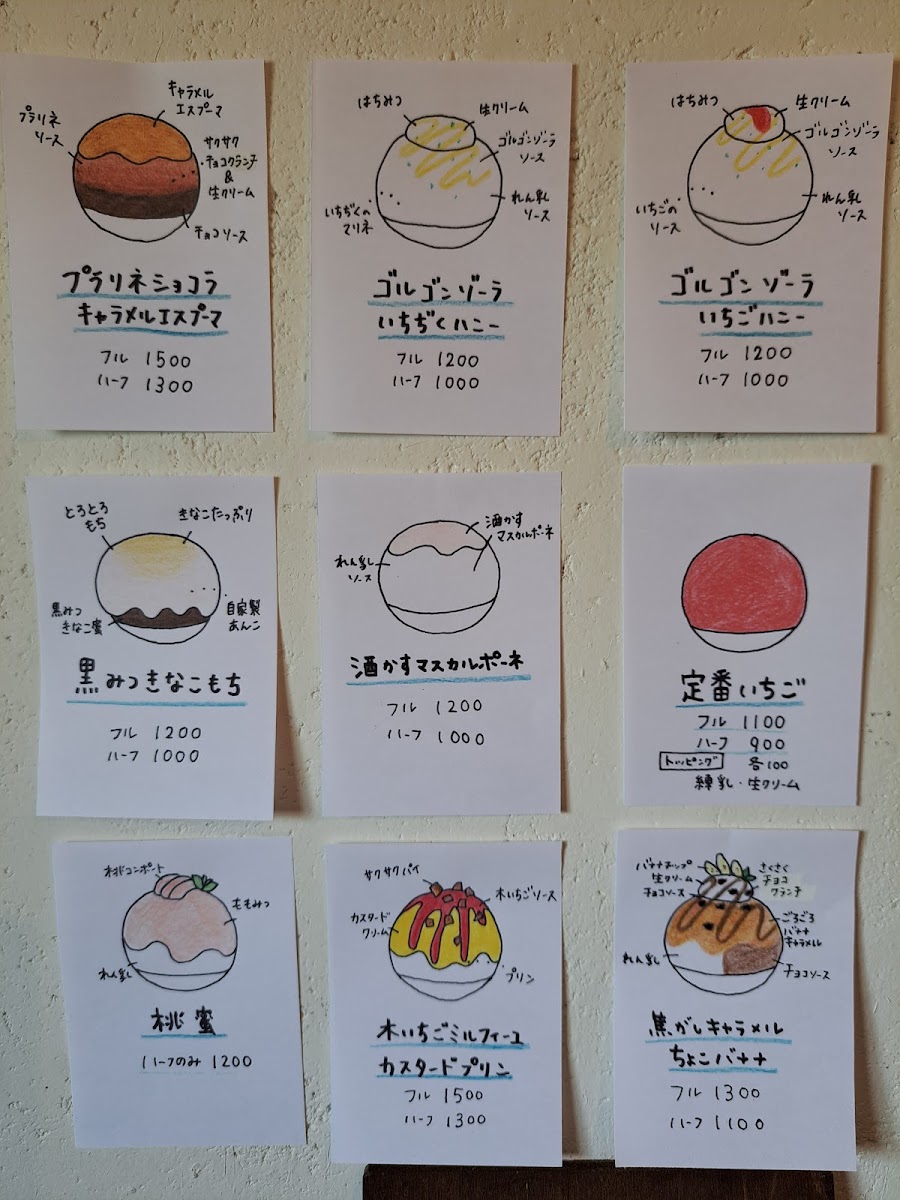 キャラメル
エスプーマ
プラリネ
ソース
サクサク
チョコクランチ
&
生クリーム
チョコソース
プラリネショコラ
キャラメルエスプーマ
フル 1500
ハーフ 1300
はちみつ
生クリーム
ゴルゴンゾーラ
ソース
いちぢくの
マリネ
れん乳
ソース
ゴルゴンゾーラ
いちぢくハニー
フル 1200
ハーフ 1000
はちみつ
生クリーム
ゴルゴンゾーラ
ソース
いちごの
ソース
れん乳
ソース
ゴルゴンゾーラ
いちごハニー
フル 1200
ハーフ 1000
とろとろ
もち
きなこたっぷり
黒みつ
きなこ蜜
自家製
あんこ
黒みつきなこもち
フル 1200
ハーフ 1000
酒かす
マスカルポーネ
れん乳
ソース
酒かすマスカルポーネ
フル 1200
ハーフ 1000
定番いちご
フル 1100
ハーフ 900
トッピング 各100
練乳・生クリーム
桃コンポート
ももみつ
れん乳
桃蜜
ハーフのみ 1200
サクサクパイ
木いちごソース
カスタード
クリーム
プリン
木いちごミルフィーユ
カスタードプリン
フル 1500
ハーフ 1300
バナナチップ
生クリーム
チョコソース
さくさく
チョコ
クランチ
ごろごろ
バナナ
キャラメル
れん乳
チョコソース
焦がしキャラメル
ちょこバナナ
フル 1300
ハーフ 1100